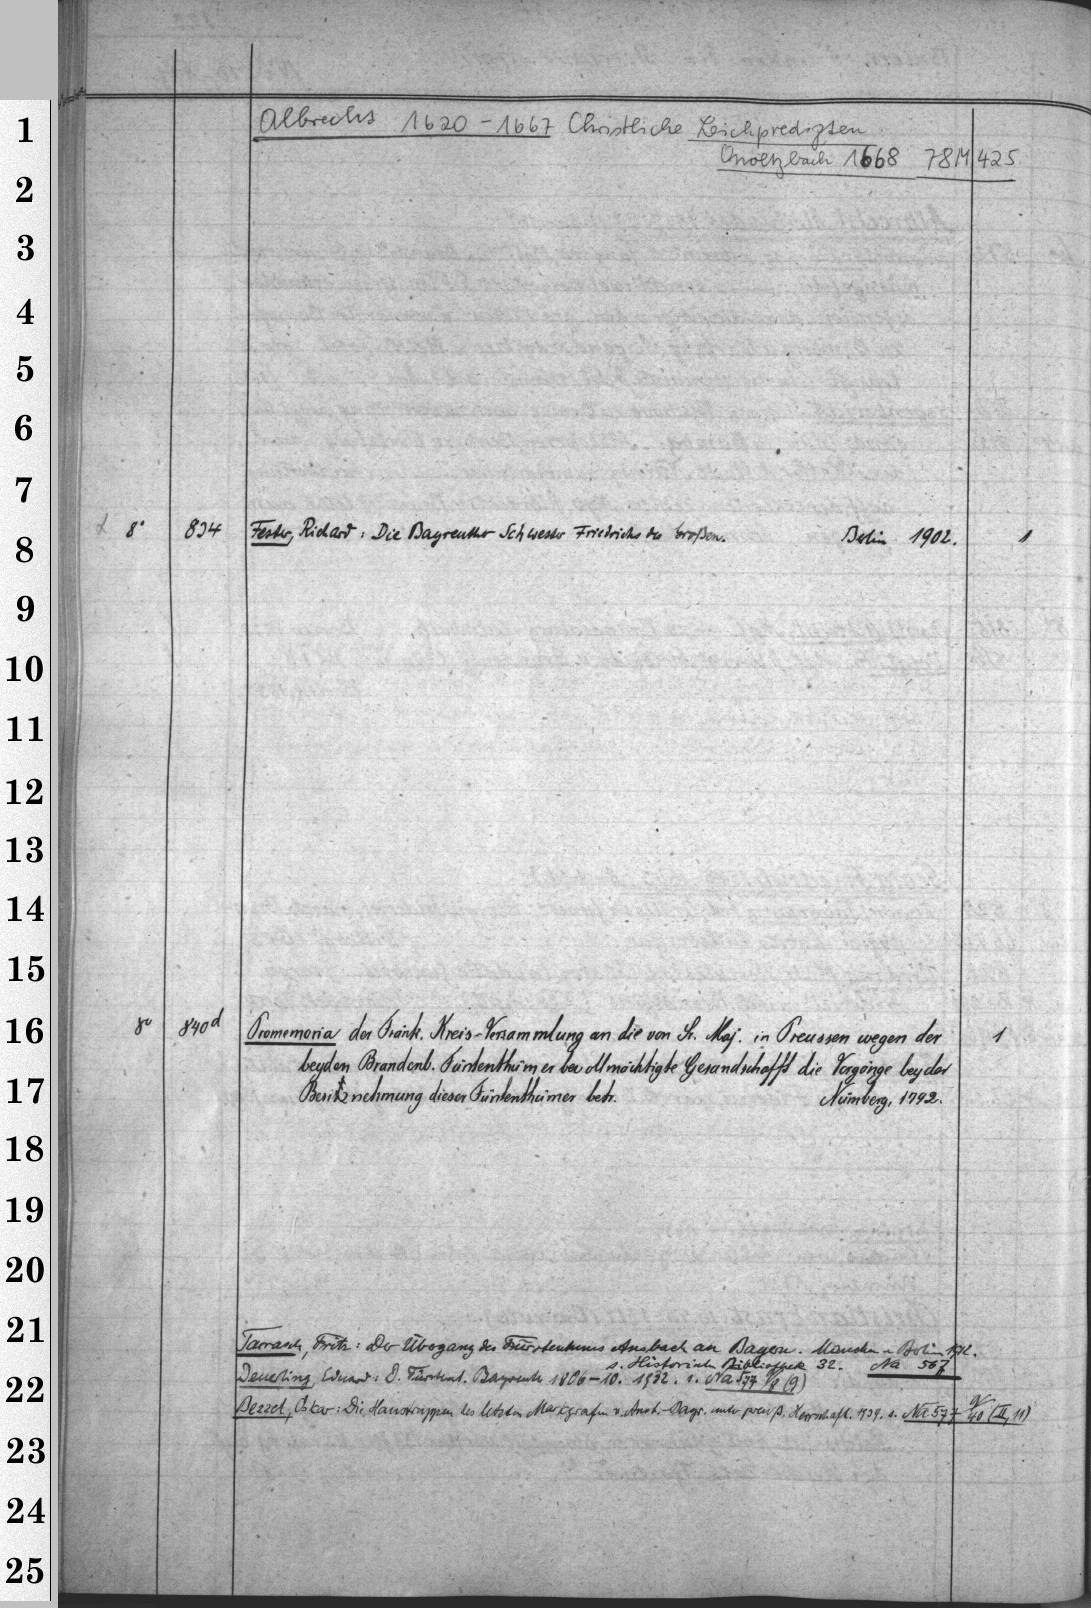 Albrechts 1620-1667 Christliche Leichpredigten
Onoltzbach 1668 78M425
8° 834 Fester, Richard: Die Bayreuther Schwester Friedrichs des Großen. Berlin 1902. 1
8° 840d Promemoria der Fränk. Kreis-Versammlung an die von Sr. Maj. in Preussen wegen der 1
beyden Brandenb. Fürstenthümer bevollmächtigte Gesandschafft die Vorgänge bey der
Besitznehmung dieser Fürstenthümer betr. Nürnberg, 1792.
Tarrasch, Fritz: Der Übergang des Fürstentums Ansbach an Bayern. München u. Berlin 1912.
s. Historische Bibliothek 32. Na 567
Deuerling, Eduard: D. Fürstent. Bayreuth 1806-10. 1932. s. Na 577 9/8 (9)
Bezzel, Oskar: Die Haustruppen des letzten Markgrafen v. Ansb.-Bayr. unter preuß. Herrschaft. 1939. s. Na 577 9/40 (II, 11)
1
2
3
4
5
6
7
8
9
10
11
12
13
14
15
16
17
18
19
20
21
22
23
24
25